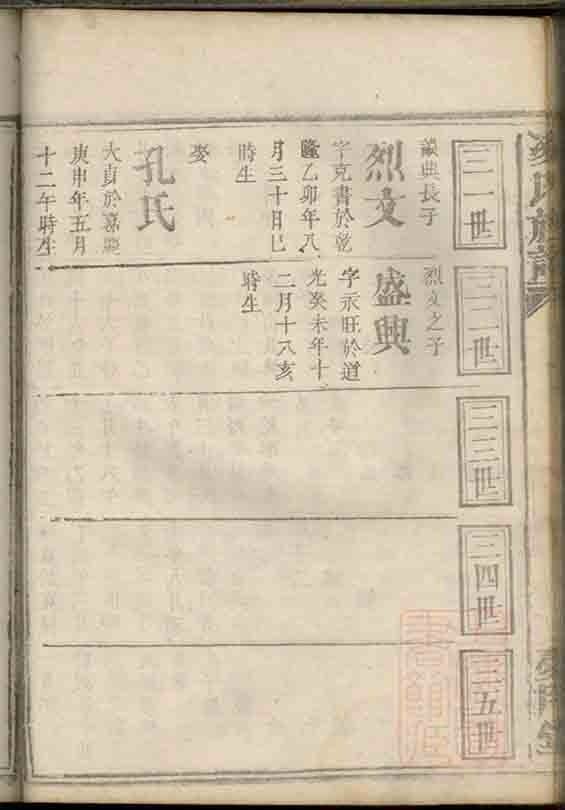 三一世
三二世
三三世
三四世
三五世
典長子
烈文
字克書於乾
隆乙卯年八
月三十日巳
時生
娶
孔氏
大貞於嘉慶
庚申年五月
十二午時生
烈文之子
盛興
字永旺於道
光癸未年十
二月十八亥
時生